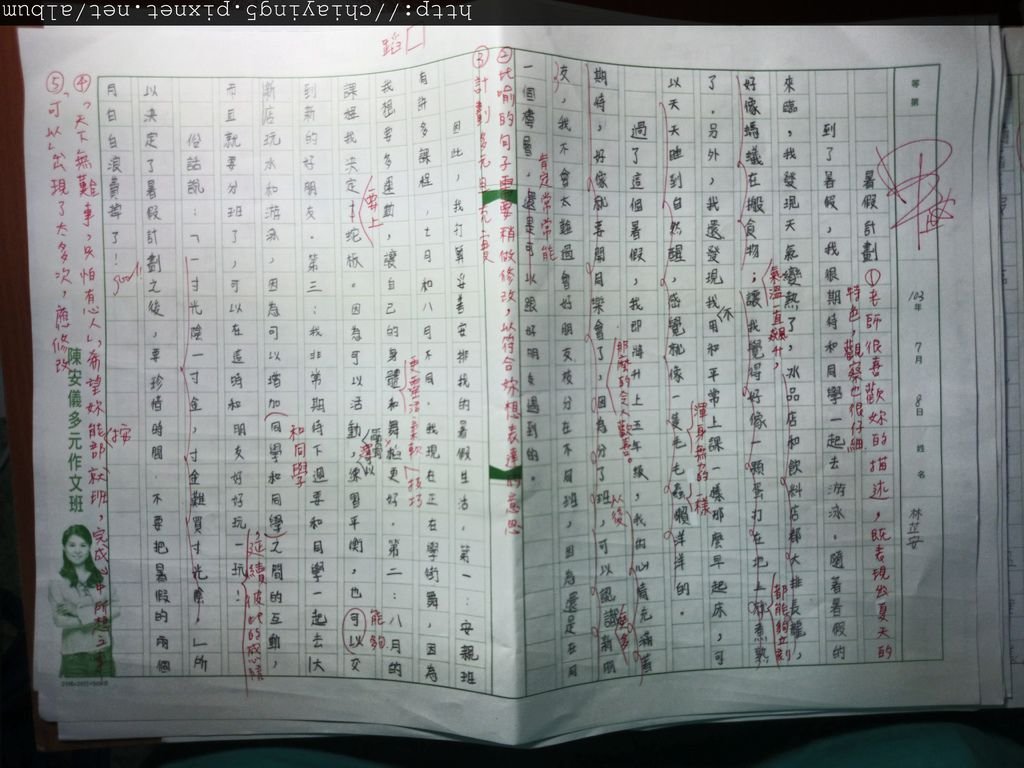 http://chiaying5.pixnet.net/album/
等第
103年 7月 8日
姓名 林芷安
暑假計劃
到了暑假,我很期待和同學一起去游泳。隨著暑假的
來臨,我發現天氣變熱了,冰品店和飲料店都大排長龍,
好像螞蟻在搬食物;讓我覺得好像一顆蛋打在地上煮熟
了。另外,我還發現我不用和平常上課一樣那麼早起床,可
以天天睡到自然醒,感覺就像一隻毛毛蟲懶洋洋的。
過了這個暑假,我即將升上五年級,我的心情充滿著
期待,好像就要開同樂會了,因為分了班,可以認識新朋
友,我不會太難過會好朋友被分在不同班,因為還是在同
一個樓層,還是可以跟好朋友遇到的。
因此,我打算妥善安排我的暑假生活。第一:安親班
有許多課程,七月和八月不同,我現在正在學街舞,因為
我想要多運動,讓自己的身體和舞蹈更好。第二:八月的
課程我決定才蛇板。因為可以活動,練習平衡,也可以交
到新的好朋友。第三:我非常期待下週要和同學一起去大
新店玩水和游泳,因為可以增加同學和同學之間的互動,
而且就要分班了,可以在這時和朋友好好玩一玩!
俗話說:「一寸光陰一寸金,寸金難買寸光陰。」所
以決定了暑假計劃之後,要珍惜時間,不要把暑假的兩個
月白白浪費掉了!
①老師很喜歡妳的描述,既表現出夏天的
特色,觀察也很仔細
氣溫直飆升,
都能夠立刻
渾身無力的一樣
那麼的令人歡喜。
從後
更多
肯定常常能
②比喻的句子需要稍做修改,以符合妳想表達的意思
③計劃多元且充實
蹈
更靈活柔軟
技巧
要上
能夠
和同學
延續彼此的感情
good!
④「天下無難事,只怕有心人」,希望妳能部就班,完成心中所想之事
按
⑤「可以」出現了太多次,應修改
陳安儀多元作文班